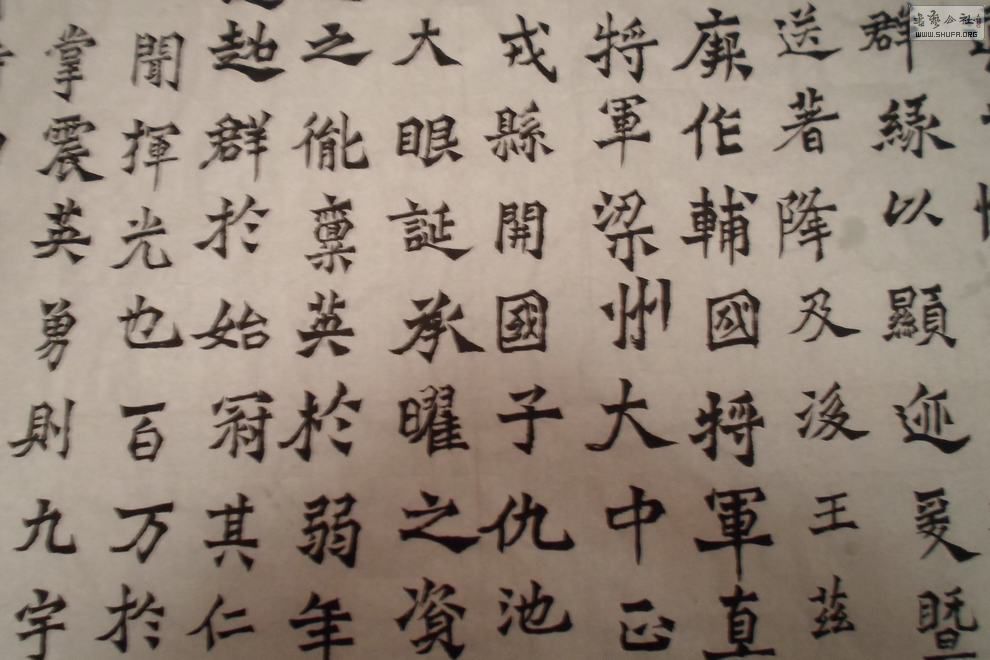 群緣以顯迹爰暨
送著降及後王茲
厥作輔國將軍直
將軍梁州大中正
戎縣開國子仇池
大眼誕承曜之資
之胤稟英於弱年
超群於始冠其仁
聞揮光也百万於
掌震英勇則九宇
书艺公社
WWW.SHUFA.ORG